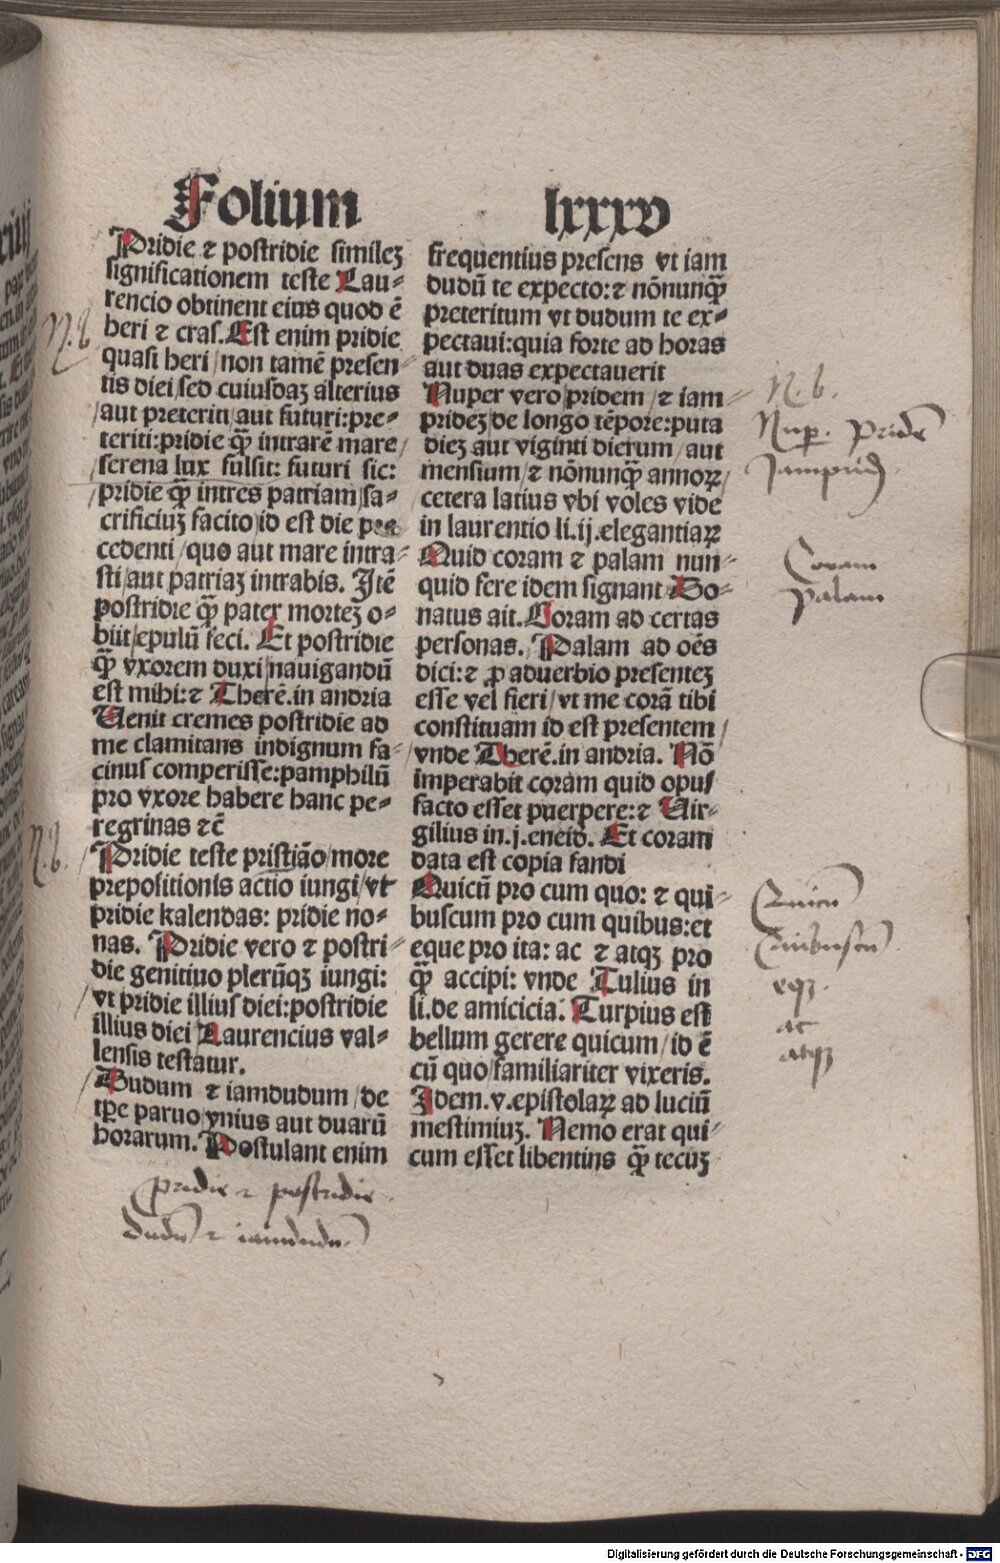 Folium lxxxv
Pridie ⁊ postridie simileꝫ
significationem teste Lau-
rencio obtinent eius quod ē
heri ⁊ cras. Est enim pridie
quasi heri / non tamē presen-
tis diei / sed cuiusdaꝫ alterius
/ aut preteriti / aut futuri: pre-
teriti: pridie qꝫ̄ intrarē mare /
/ serena lux fulsit: futuri sic:
/ pridie qꝫ̄ intres patriam / sa-
crificiuꝫ facito / id est die pre
cedenti / quo aut mare intra-
sti / aut patriaꝫ intrabis. Itē
postridie qꝫ̄ pater morteꝫ o-
biit / epulū feci. Et postridie
qꝫ̄ vxorem duxi / nauigandū
est mihi: ⁊ Therē. in andria
Uenit cremes postridie ad
me clamitans indignum fa-
cinus comperisse: pamphilū
pro vxore habere hanc pe-
regrinas ⁊c̄
Pridie teste pristiāo / more
prepositionis actio iungi / vt
pridie kalendas: pridie no-
nas. Pridie vero ⁊ postri-
die genitiuo plerūqꝫ iungi:
/ vt pridie illius diei: postridie
illius diei Laurencius val-
lensis testatur.
/ Dudum ⁊ iamdudum / de
tp̄e paruo / vnius aut duarū
horarum. Postulant enim
frequentius presens vt iam
dudū te expecto: ⁊ nōnunqꝫ̄
preteritum vt dudum te ex-
pectaui: quia forte ad horas
aut duas expectauerit
Nuper vero / pridem / ⁊ iam-
prideꝫ / de longo tēpore: puta
dieꝫ aut viginti dierum / aut
mensium / ⁊ nōnunqꝫ̄ annoꝝ /
cetera latius vbi voles vide
in laurentio li. ij. elegantiaꝝ
Quid coram ⁊ palam nun-
quid fere idem signant Do-
natus ait. Coram ad certas
personas. Palam ad oēs
dici: ⁊ ꝓ aduerbio presenteꝫ
esse vel fieri / vt me corā tibi
constituam id est presentem /
vnde Therē. in andria. Nō
imperabit coram quid opus
facto esset puerpere: ⁊ Uir-
gilius in. j. eneid. Et coram
data est copia fandi
Quicū pro cum quo: ⁊ qui-
buscum pro cum quibus: et
eque pro ita: ac ⁊ atqꝫ pro
qꝫ̄ accipi: vnde Tulius in
li. de amicicia. Turpius est
bellum gerere quicum / id ē
cū quo / familiariter vixeris.
Idem. v. epistolaꝝ ad luciū
mestimiuꝫ. Nemo erat qui-
cum esset libentius qꝫ̄ tecuꝫ
N. b.
N. b.
N. b.
Nup. Pridē
Jamprid
Coram
Palam
Quicū
Quibuscū
eqꝫ.
ac
atqꝫ
Pridie ⁊ postridie
dudū ⁊ iamdudū
Digitalisierung gefördert durch die Deutsche Forschungsgemeinschaft - DFG